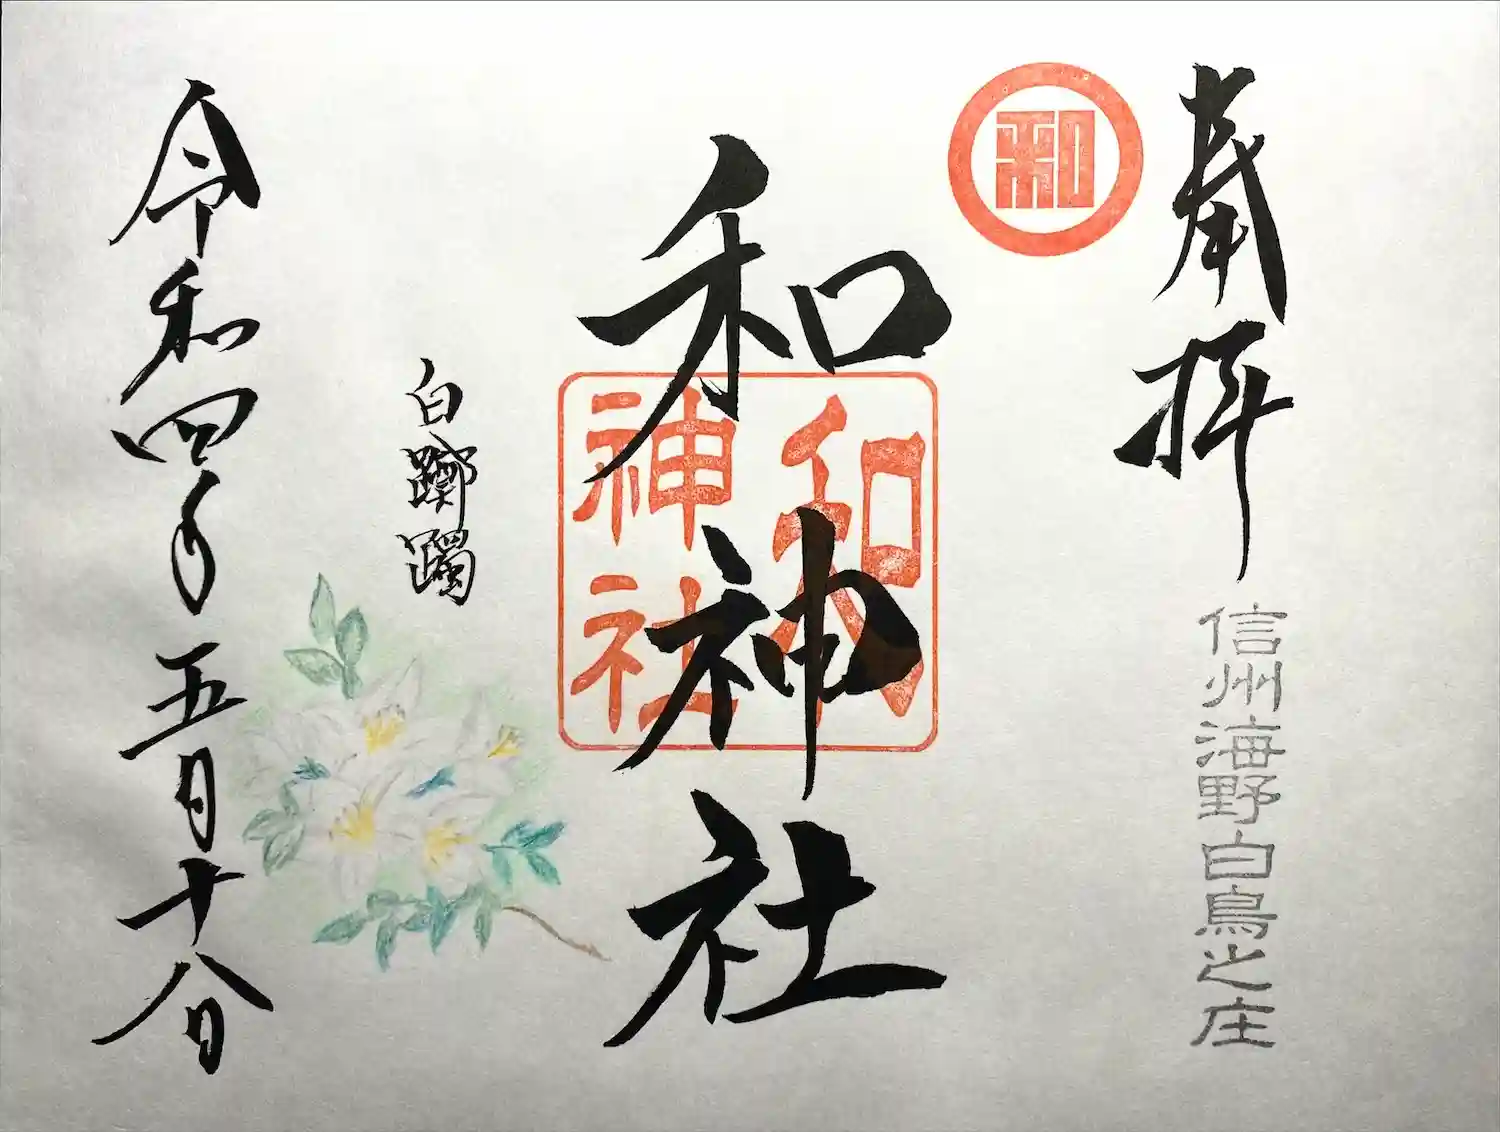 奉拝
信州海野白鳥之庄
和
和神社
和
神社
白躑躅
令和四年五月十八日